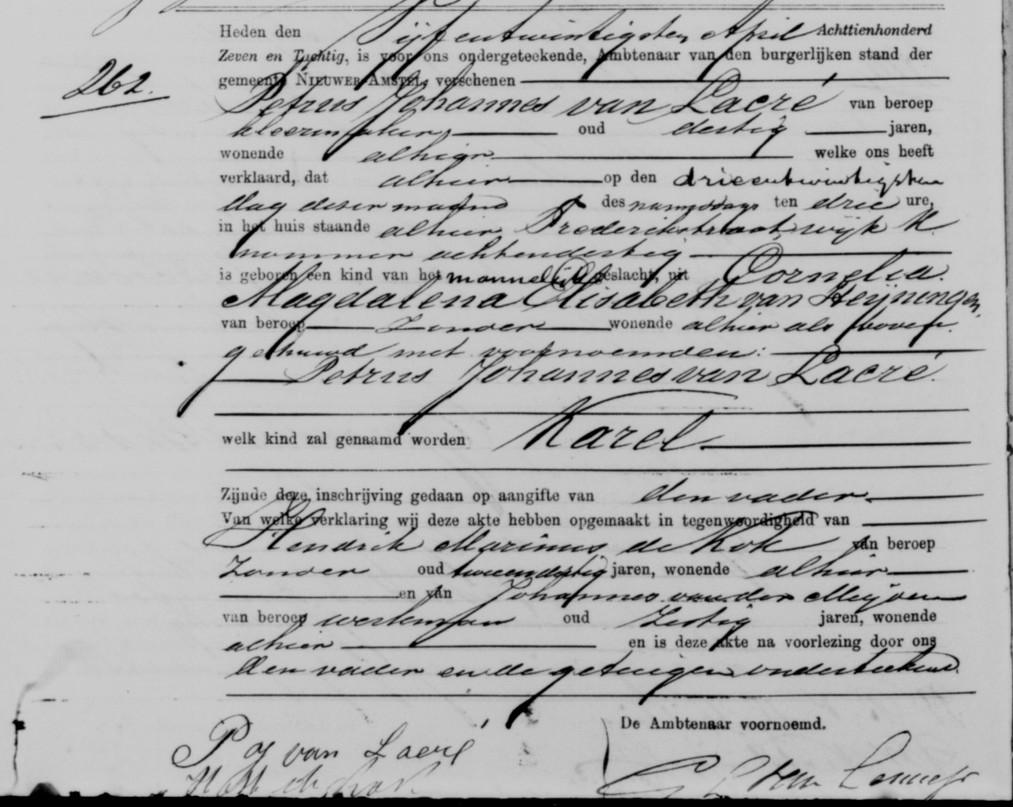 262.
Heden den Vijfentwintigsten April Achttienhonderd
Zeven en Tachtig, is voor ons ondergeteekende, Ambtenaar van den burgerlijken stand der
gemeente NIEUWER-AMSTEL, verschenen
Petrus Johannes van Lacré van beroep
kleermaker, oud dertig jaren,
wonende alhier welke ons heeft
verklaard, dat alhier op den drieentwintigsten
dag dezer maand des namiddags ten drie ure,
in het huis staande alhier Frederikstraat, wijk K.
nummer achtendertig
is geboren een kind van het mannelijk geslacht, uit Cornelia
Magdalena Elisabeth van Heijningen,
van beroep zonder wonende alhier als boven.
gehuwd met voornoemden:
Petrus Johannes van Lacré.
welk kind zal genaamd worden Karel
Zijnde deze inschrijving gedaan op aangifte van den vader
Van welke verklaring wij deze akte hebben opgemaakt in tegenwoordigheid van
Hendrik Marinus de Kok van beroep
zonder oud tweendertig jaren, wonende alhier
en van Johannes van der Meijden
van beroep werkman oud zestig jaren, wonende
alhier en is deze akte na voorlezing door ons
den vader en de getuigen onderteekend.
De Ambtenaar voornoemd.
P J van Lacré